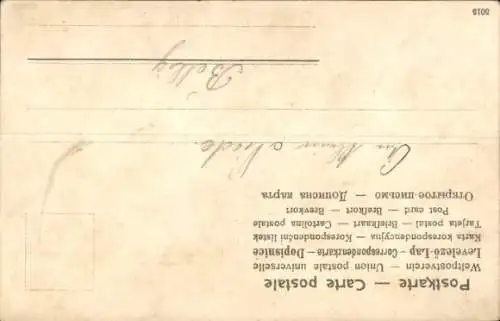 Postkarte — Carte postale
Weltpostverein — Union postale universelle
Levelező-Lap — Correspondenzkarte — Dopisnice
Karta korespondencyjna — Korespondenční lístek
Tarjeta postal — Briefkaart — Cartolina postale
Post card — Brefkort — Brevkort
Открытое письмо — Дописна карта
5015